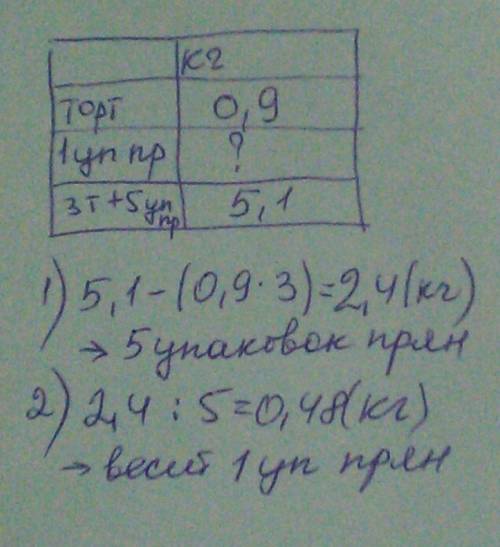 кг
торт 0,9
1 уп пр ?
3т+5 уп пр 5,1
1) 5,1-(0,9·3)=2,4(кг)
→ 5 упаковок прян
2) 2,4 : 5=0,48(кг)
→ весит 1 уп прян